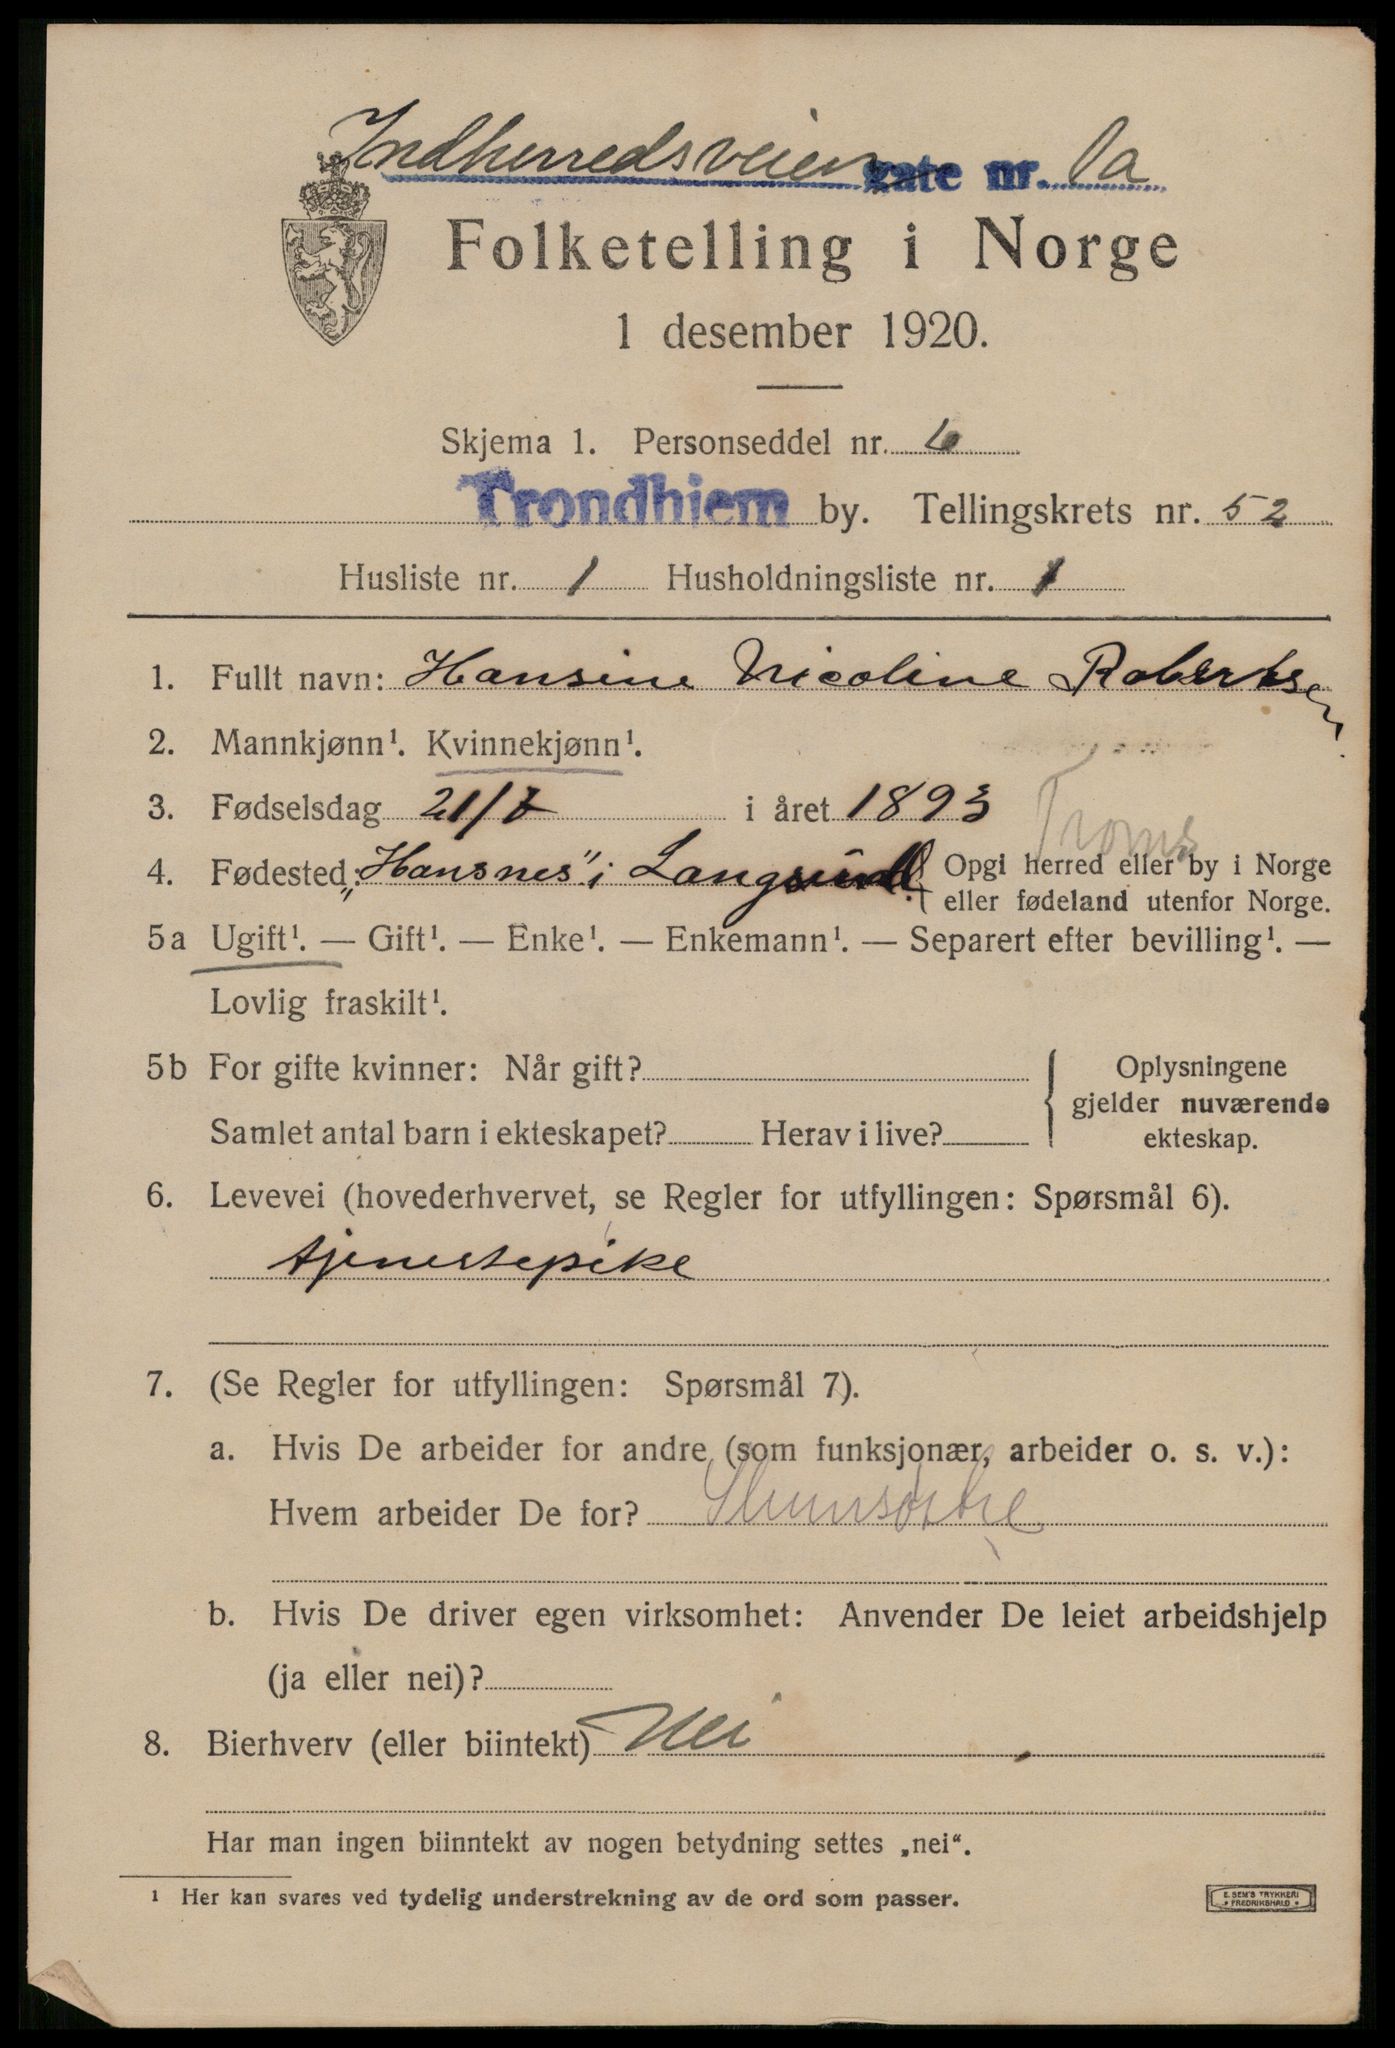 Indherredsveien gate nr. 1a
Folketelling i Norge
1 desember 1920.
Skjema 1. Personseddel nr. 6
Trondhjem by. Tellingskrets nr. 52
Husliste nr. 1 Husholdningsliste nr. 1
1. Fullt navn: Hansine Nicoline Robertsen.
2. Mannkjønn¹. Kvinnekjønn¹.
3. Fødselsdag 21/7 i året 1893
Troms
4. Fødested: „Hansnes" i Langsund. { Opgi herred eller by i Norge
eller fødeland utenfor Norge.
5a Ugift¹. — Gift¹. — Enke¹. — Enkemann¹. — Separert efter bevilling¹. —
Lovlig fraskilt¹.
5b For gifte kvinner: Når gift? { Oplysningene
gjelder nuværende
Samlet antal barn i ekteskapet? Herav i live? ekteskap.
6. Levevei (hovederhvervet, se Regler for utfyllingen: Spørsmål 6).
tjenestepike
7. (Se Regler for utfyllingen: Spørsmål 7).
a. Hvis De arbeider for andre (som funksjonær, arbeider o. s. v.):
Hvem arbeider De for?
b. Hvis De driver egen virksomhet: Anvender De leiet arbeidshjelp
(ja eller nei)?
8. Bierhverv (eller biintekt) Nei
Har man ingen biinntekt av nogen betydning settes „nei“.
¹ Her kan svares ved tydelig understrekning av de ord som passer.
E. SEM'S TRYKKERI
• FREDRIKSHALD •